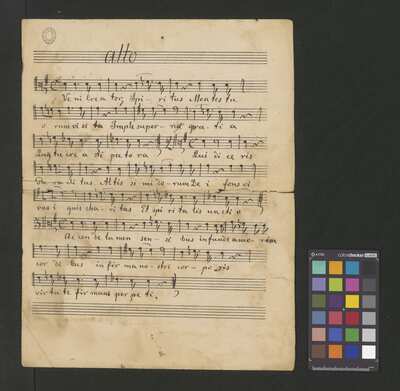 alto
Veni Creator Spi- ri tus Mentes tu
o rum vi si ta Imple super- na gra- ti a
Qui di ce ris
Pa- ra cli tus. Altis si mi do- num De i fons vi
vus i gnis cha- ri tas Et spi ri ta lis unctio
Accende lumen sen- si bus infunde amo- rem
cor di bus infir ma no- stri cor- po- ris
virtu te fir mans per pe ti.